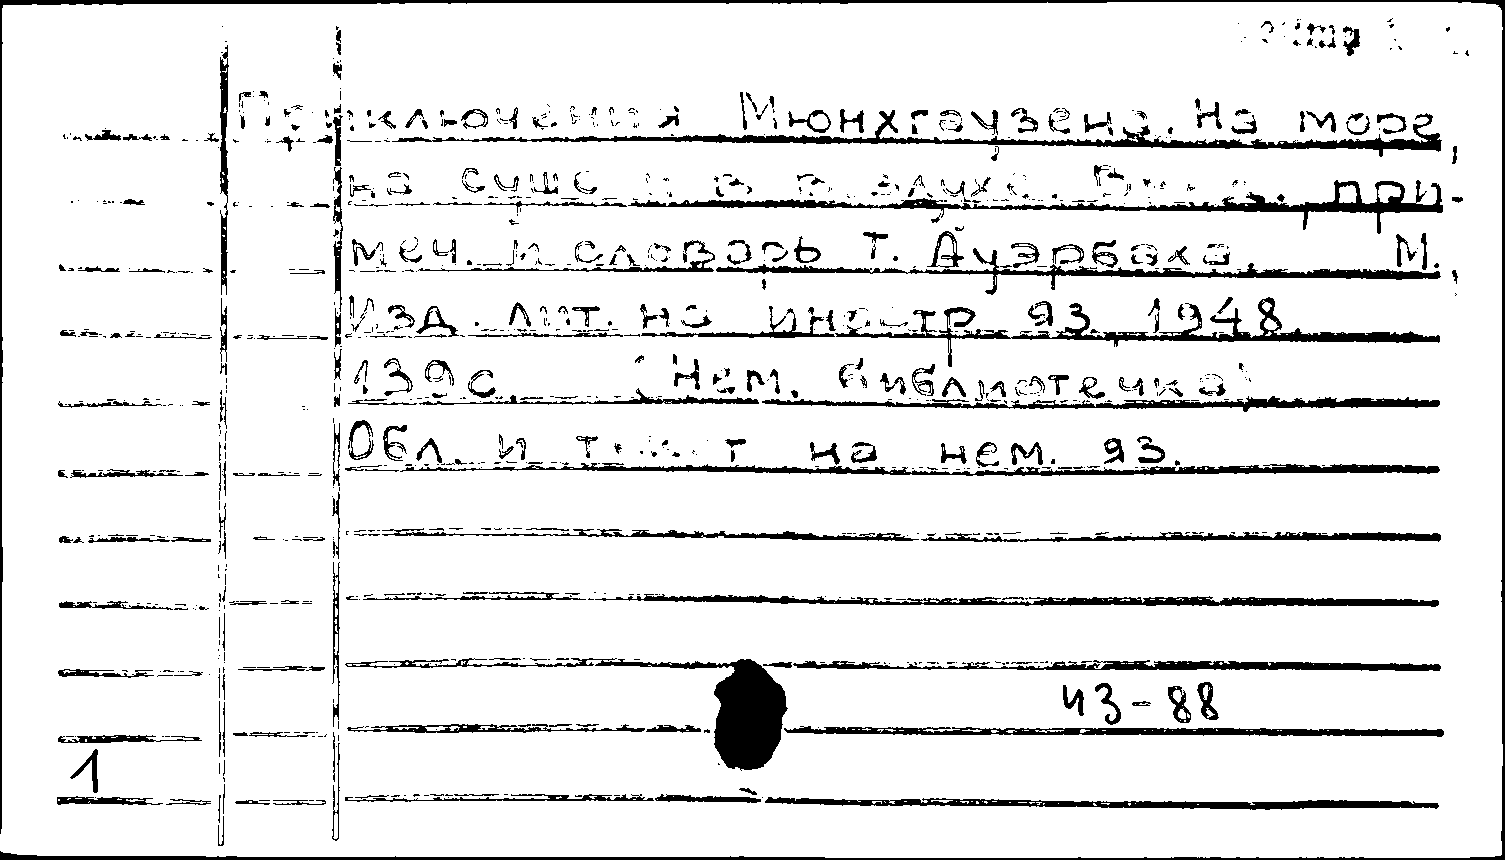 Приключения Мюнхгаузена. На море,
на суше и в воздухе. при-
меч. и словарь Т. Ауэрбаха. М.,
Изд. лит. на иностр. яз. 1948.
139 с. (Нем. библиотечка)
Обл. и текст на нем. яз.
43-88
1